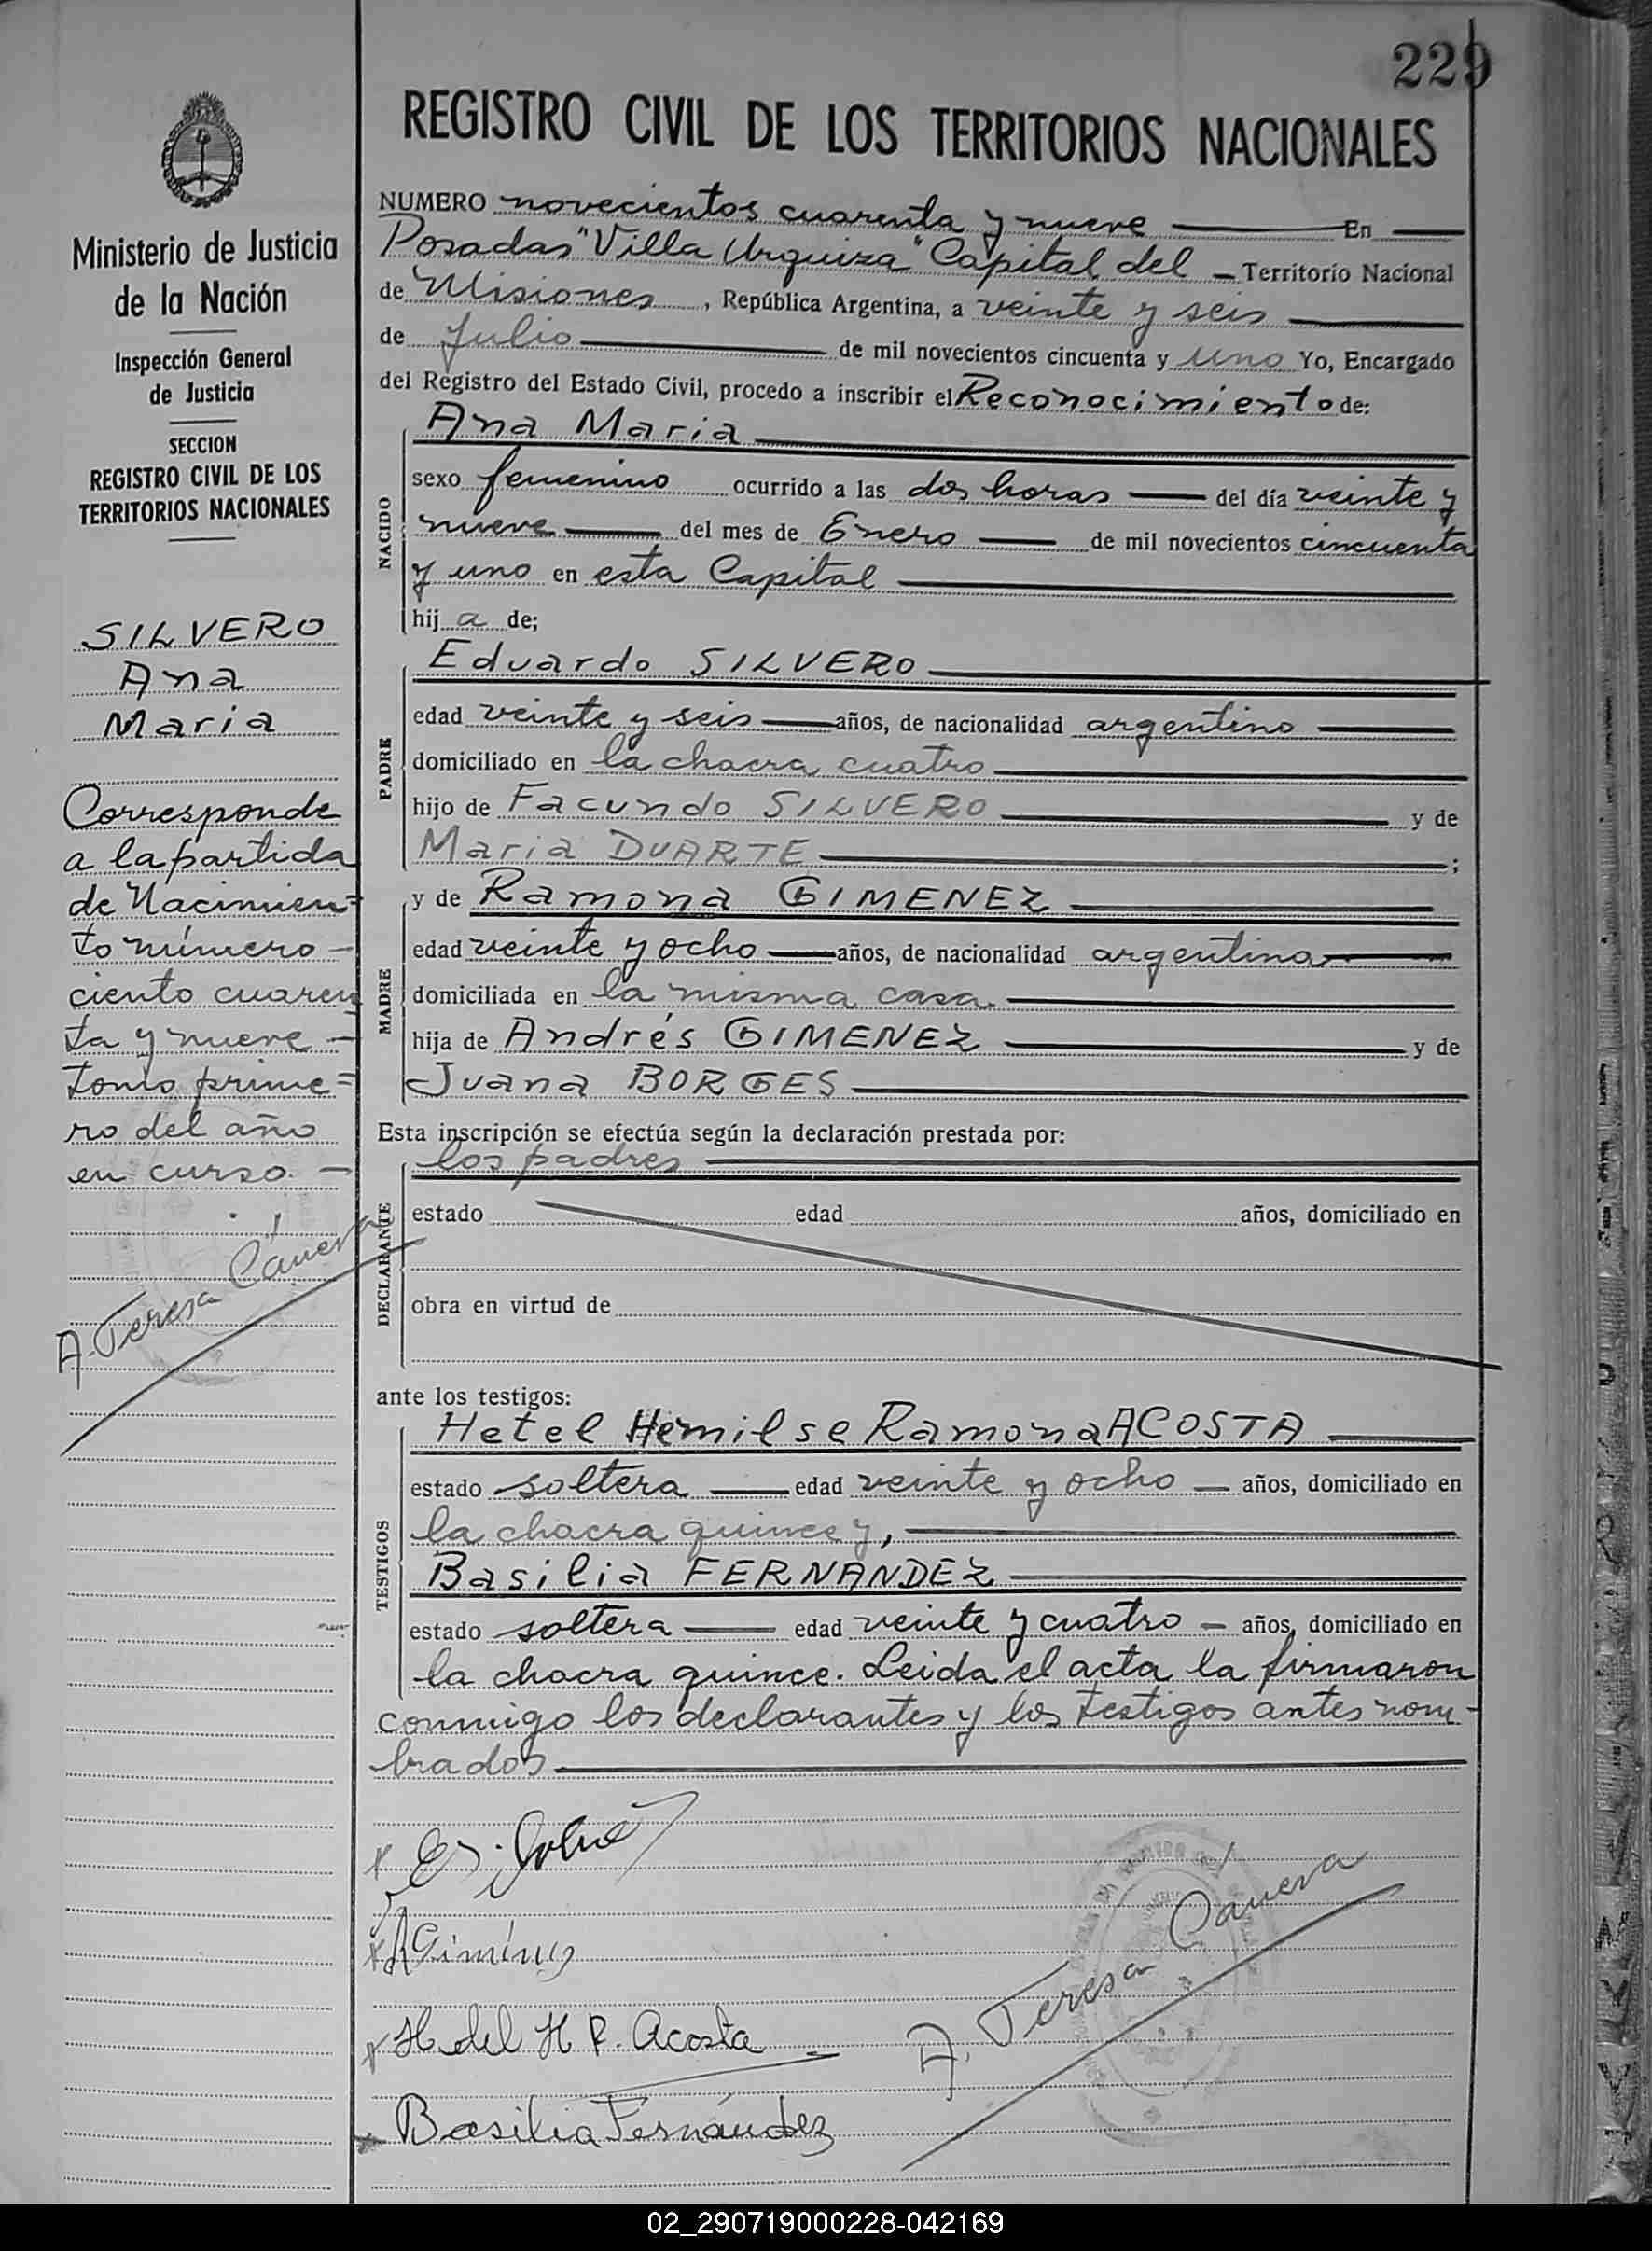 229
REGISTRO CIVIL DE LOS TERRITORIOS NACIONALES
Ministerio de Justicia
de la Nación
Inspección General
de Justicia
SECCION
REGISTRO CIVIL DE LOS
TERRITORIOS NACIONALES
SILVERO
Ana
Maria
Corresponde
a la partida
de Nacimien=
to número —
ciento cuaren
ta y nueve —
tomo prime=
ro del año
en curso. —
A. Teresa Cánera
NUMERO novecientos cuarenta y nueve — En —
Posadas "Villa Urquiza" Capital del — Territorio Nacional
de Misiones, República Argentina, a veinte y seis —
de Julio — de mil novecientos cincuenta y uno Yo, Encargado
del Registro del Estado Civil, procedo a inscribir el Reconocimiento de:
NACIDO
Ana Maria —
sexo femenino ocurrido a las dos horas — del día veinte y
nueve — del mes de Enero — de mil novecientos cincuenta
y uno en esta Capital —
hij a de;
PADRE
Eduardo SILVERO —
edad veinte y seis — años, de nacionalidad argentino —
domiciliado en la chacra cuatro —
hijo de Facundo SILVERO — y de
Maria DUARTE — ;
MADRE
y de Ramona GIMENEZ —
edad veinte y ocho — años, de nacionalidad argentina —
domiciliada en la misma casa. —
hija de Andrés GIMENEZ — y de
Juana BORGES —
Esta inscripción se efectúa según la declaración prestada por:
DECLARANTE
los padres —
estado edad años, domiciliado en
obra en virtud de
ante los testigos:
TESTIGOS
Hetel Hemilse Ramona ACOSTA —
estado soltera — edad veinte y ocho — años, domiciliado en
la chacra quince y, —
Basilia FERNANDEZ —
estado soltera — edad veinte y cuatro — años, domiciliado en
la chacra quince. Leida el acta la firmaron
conmigo los declarantes y los testigos antes nom-
brados —
H. R. Acosta
A. Teresa Cánera
Basilia Fernández
02_290719000228-042169